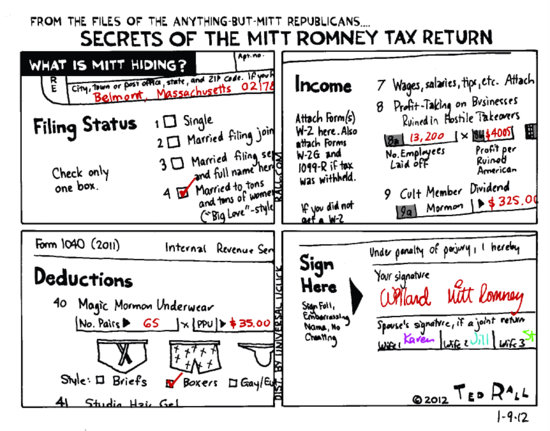 FROM THE FILES OF THE ANYTHING-BUT-MITT REPUBLICANS....
SECRETS OF THE MITT ROMNEY TAX RETURN
WHAT IS MITT HIDING?
Apt. no.
R
E
City, town or post office, state, and ZIP code. If you h
Belmont, Massachusetts 02178
Filing Status
Check only
one box.
1 Single
2 Married filing join
3 Married filing se
and full name her
4 Married to tons
and tons of women
("Big Love"-style
Income
Attach Form(s)
W-2 here. Also
attach Forms
W-2G and
1099-R if tax
was withheld.
If you did not
get a W-2
7 Wages, salaries, tips, etc. Attach
8 Profit-Taking on Businesses
Ruined in Hostile Takeovers
8a 13,200 x $4005
No. Employees
Laid off
Profit per
Ruined
American
9 Cult Member Dividend
9a Mormon $325.00
RALL.COM
DIST. BY UNIVERSAL UCLICK
Form 1040 (2011) Internal Revenue Ser
Deductions
40 Magic Mormon Underwear
No. Pairs 65 x PPU $35.00
Style: Briefs Boxers Gay/Eu
41 Studio Hair Gel
Sign
Here
Sign Full,
Embarrassing
Name, No
Cheating
Under penalty of perjury, I hereby
Your signature
Willard Mitt Romney
Spouse's signature, if a joint return
Wife 1 Karen Wife 2 Jill Wife 3 St
©2012 TED RALL
1-9-12